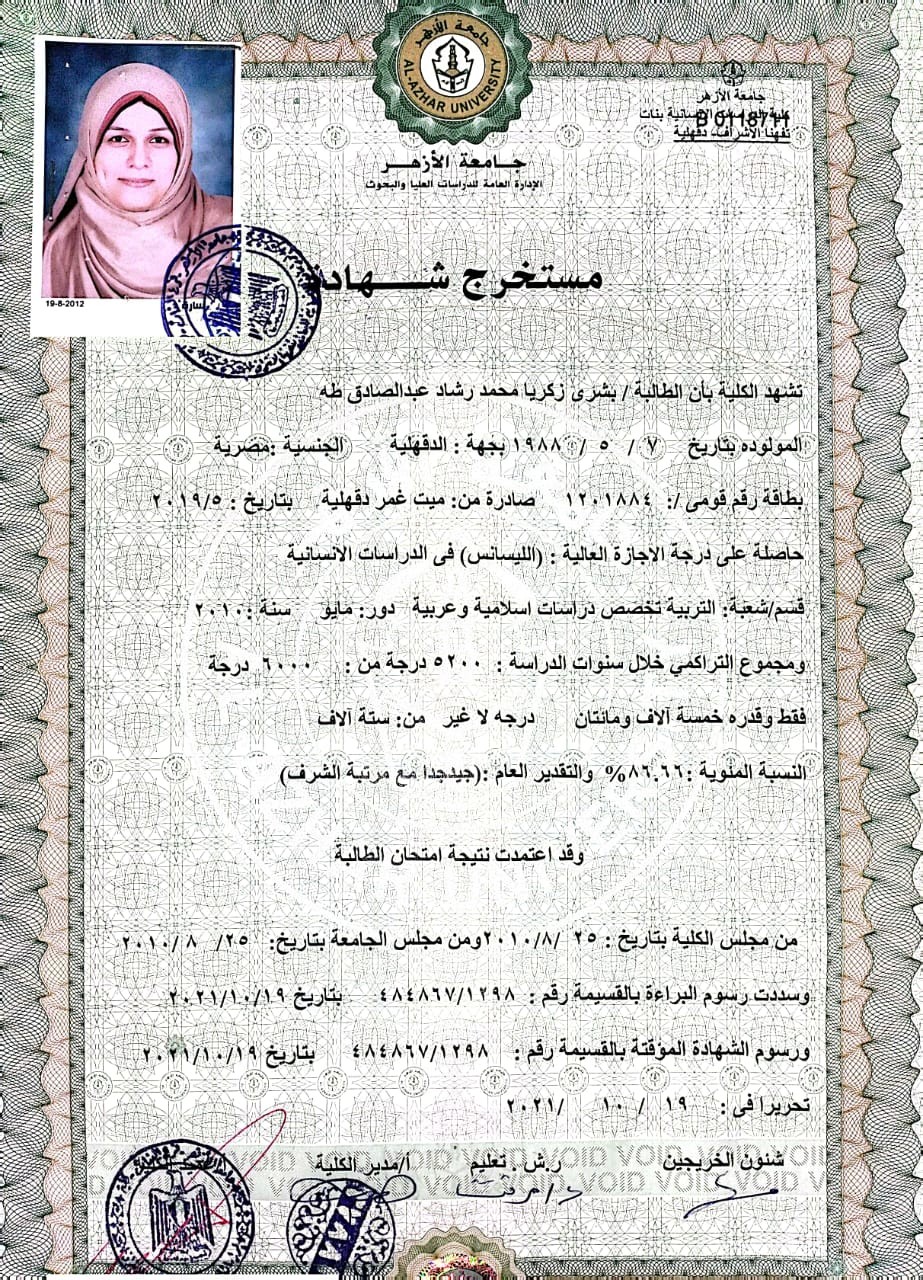 جامعة الأزهر
AL-AZHAR UNIVERSITY
جامعة الأزهر
الإدارة العامة للدراسات العليا والبحوث
جامعة الأزهر
كلية الدراسات الإنسانية بنات
B 0118711
تفهنا الأشراف - دقهلية
19-8-2012
سارة
مستخرج شهادة
تشهد الكلية بأن الطالبة / بشرى زكريا محمد رشاد عبدالصادق طه
المولوده بتاريخ ٧ / ٥ / ١٩٨٨ بجهة : الدقهلية الجنسية :مصرية
بطاقة رقم قومى /: ١٢٠١٨٨٤ صادرة من: ميت غمر دقهلية بتاريخ : ٢٠١٩/٥
حاصلة على درجة الاجازة العالية : (الليسانس) فى الدراسات الانسانية
قسم/شعبة: التربية تخصص دراسات اسلامية وعربية دور: مايو سنة :٢٠١٠
ومجموع التراكمي خلال سنوات الدراسة : ٥٢٠٠ درجة من : ٦٠٠٠ درجة
فقط وقدره خمسة آلاف ومائتان درجه لا غير من: ستة آلاف
النسبة المئوية :٨٦.٦٦% والتقدير العام :(جيدجدا مع مرتبة الشرف)
وقد اعتمدت نتيجة امتحان الطالبة
من مجلس الكلية بتاريخ : ٢٥ /٢٠١٠/٨ ومن مجلس الجامعة بتاريخ: ٢٥/ ٨ /٢٠١٠
وسددت رسوم البراءة بالقسيمة رقم : ٤٨٤٨٦٧/١٢٩٨ بتاريخ ٢٠٢١/١٠/١٩
ورسوم الشهادة المؤقتة بالقسيمة رقم : ٤٨٤٨٦٧/١٢٩٨ بتاريخ ٢٠٢١/١٠/١٩
تحريرا فى : ١٩ / ١٠ /٢٠٢١
شئون الخريجين ر.ش . تعليم أ/مدير الكلية
VOID VOID VOID VOID VOID